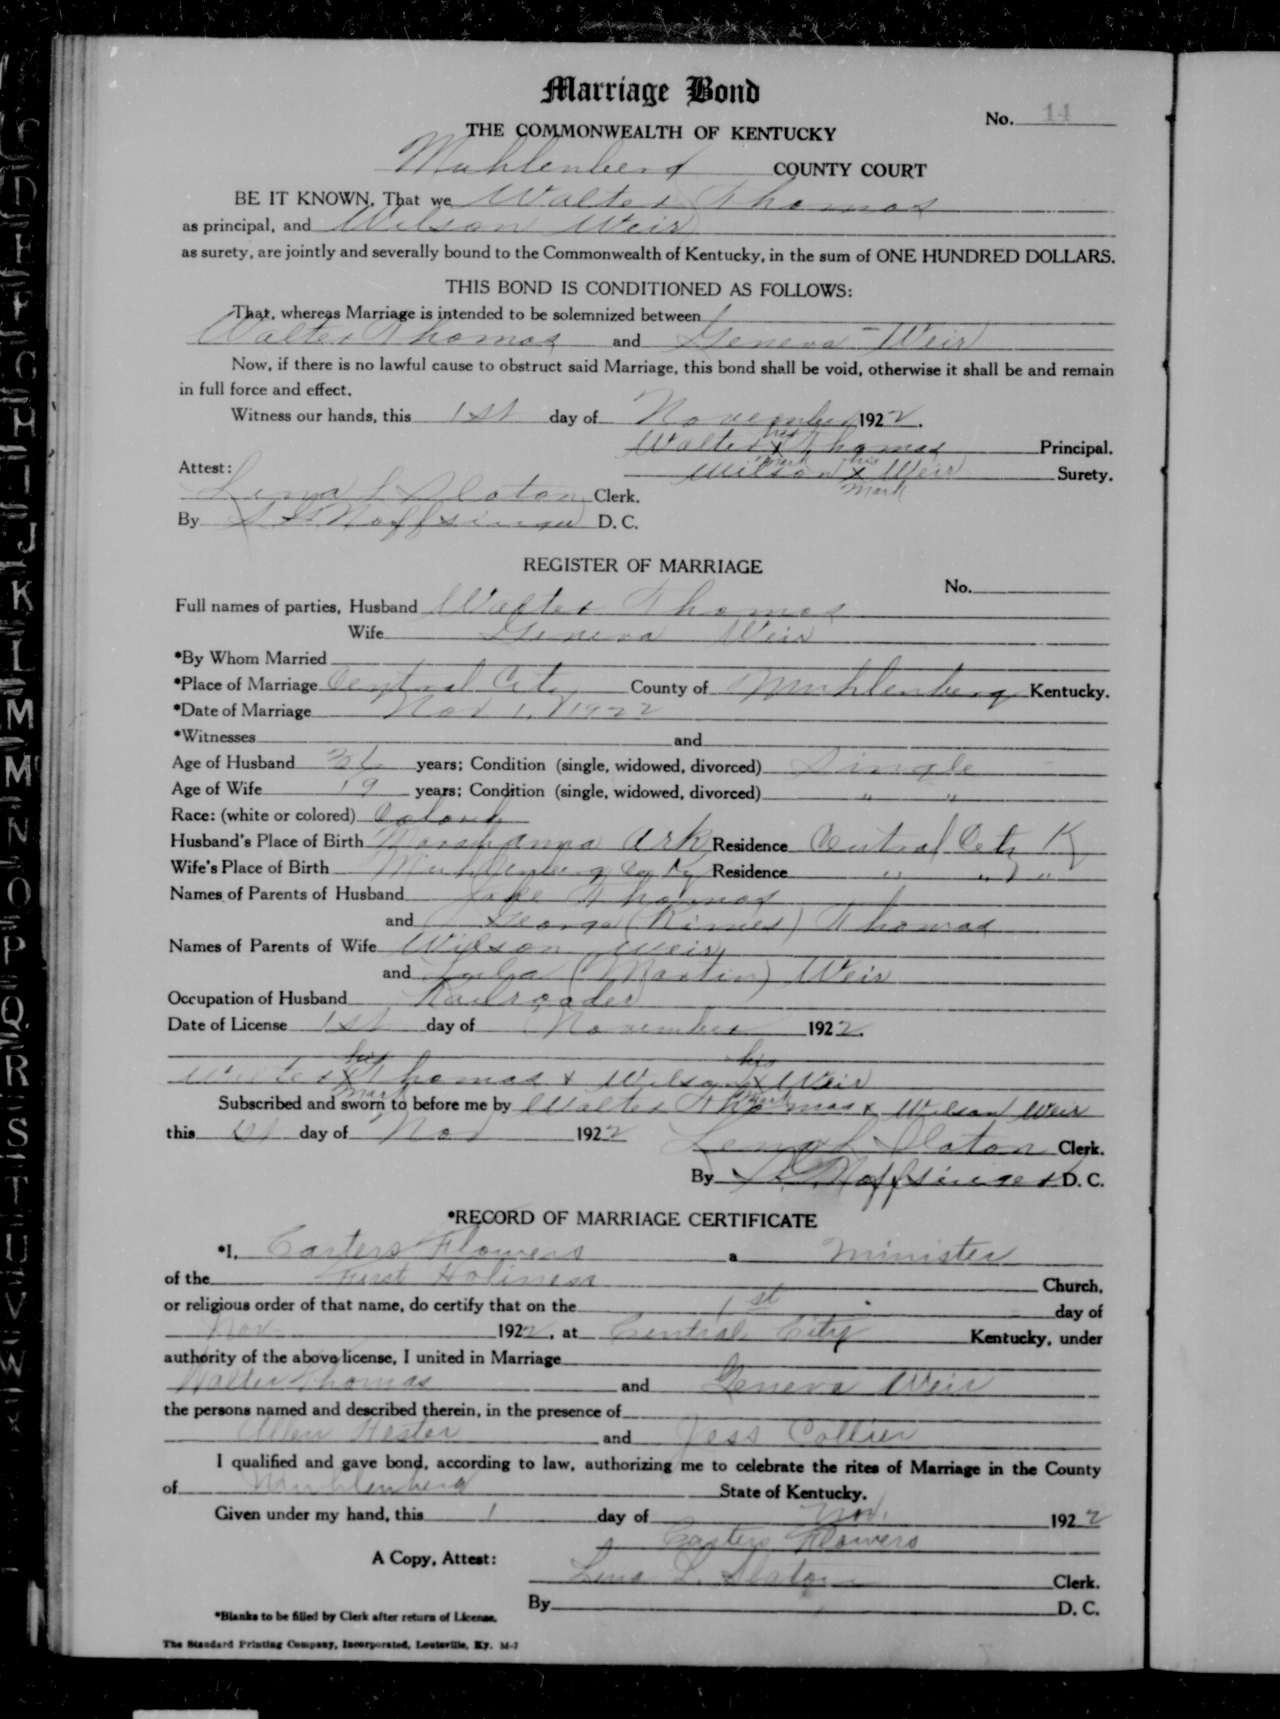 Marriage Bond
No. 14
THE COMMONWEALTH OF KENTUCKY
Muhlenberg COUNTY COURT
BE IT KNOWN, That we Walter Thomas
as principal, and Wilson Weir
as surety, are jointly and severally bound to the Commonwealth of Kentucky, in the sum of ONE HUNDRED DOLLARS.
THIS BOND IS CONDITIONED AS FOLLOWS:
That, whereas Marriage is intended to be solemnized between
Walter Thomas and Geneva Weir
Now, if there is no lawful cause to obstruct said Marriage, this bond shall be void, otherwise it shall be and remain
in full force and effect.
Witness our hands, this 1st day of November 1922.
Walter his x mark Thomas Principal.
Attest: Wilson his x mark Weir Surety.
Lena L Slaton Clerk.
By Noffsinger D. C.
REGISTER OF MARRIAGE
No.
Full names of parties, Husband Walter Thomas
Wife Geneva Weir
*By Whom Married
*Place of Marriage Central City County of Muhlenberg Kentucky.
*Date of Marriage Nov 1, 1922
*Witnesses and
Age of Husband years; Condition (single, widowed, divorced) Single
Age of Wife 19 years; Condition (single, widowed, divorced) " "
Race: (white or colored) Colored
Husband's Place of Birth Ark Residence Central City K
Wife's Place of Birth Muhlenberg Co Ky Residence " " "
Names of Parents of Husband Thomas
and George (Rimes) Thomas
Names of Parents of Wife Wilson Weir
and (Martin) Weir
Occupation of Husband Railroader
Date of License 1st day of November 1922.
Walter his x mark Thomas & Wilson his x mark Weir
Subscribed and sworn to before me by Walter Thomas & Wilson Weir
this 1st day of Nov 1922 Lena L Slaton Clerk.
By Noffsinger D. C.
*RECORD OF MARRIAGE CERTIFICATE
*I, Carters Flowers a Minister
of the First Holiness Church,
or religious order of that name, do certify that on the 1st day of
Nov 1922, at Central City Kentucky, under
authority of the above license, I united in Marriage
Walter Thomas and Geneva Weir
the persons named and described therein, in the presence of
Allen Hester and Jess Collier
I qualified and gave bond, according to law, authorizing me to celebrate the rites of Marriage in the County
of Muhlenberg State of Kentucky.
Given under my hand, this 1 day of Nov. 1922
Carters Flowers
A Copy, Attest:
Lena L. Slaton Clerk.
By D. C.
*Blanks to be filled by Clerk after return of License.
The Standard Printing Company, Incorporated, Louisville, Ky. M-7
D
E
F
G
H
I
J
K
L
M
Mc
N
O
P
Q
R
S
T
U
V
W